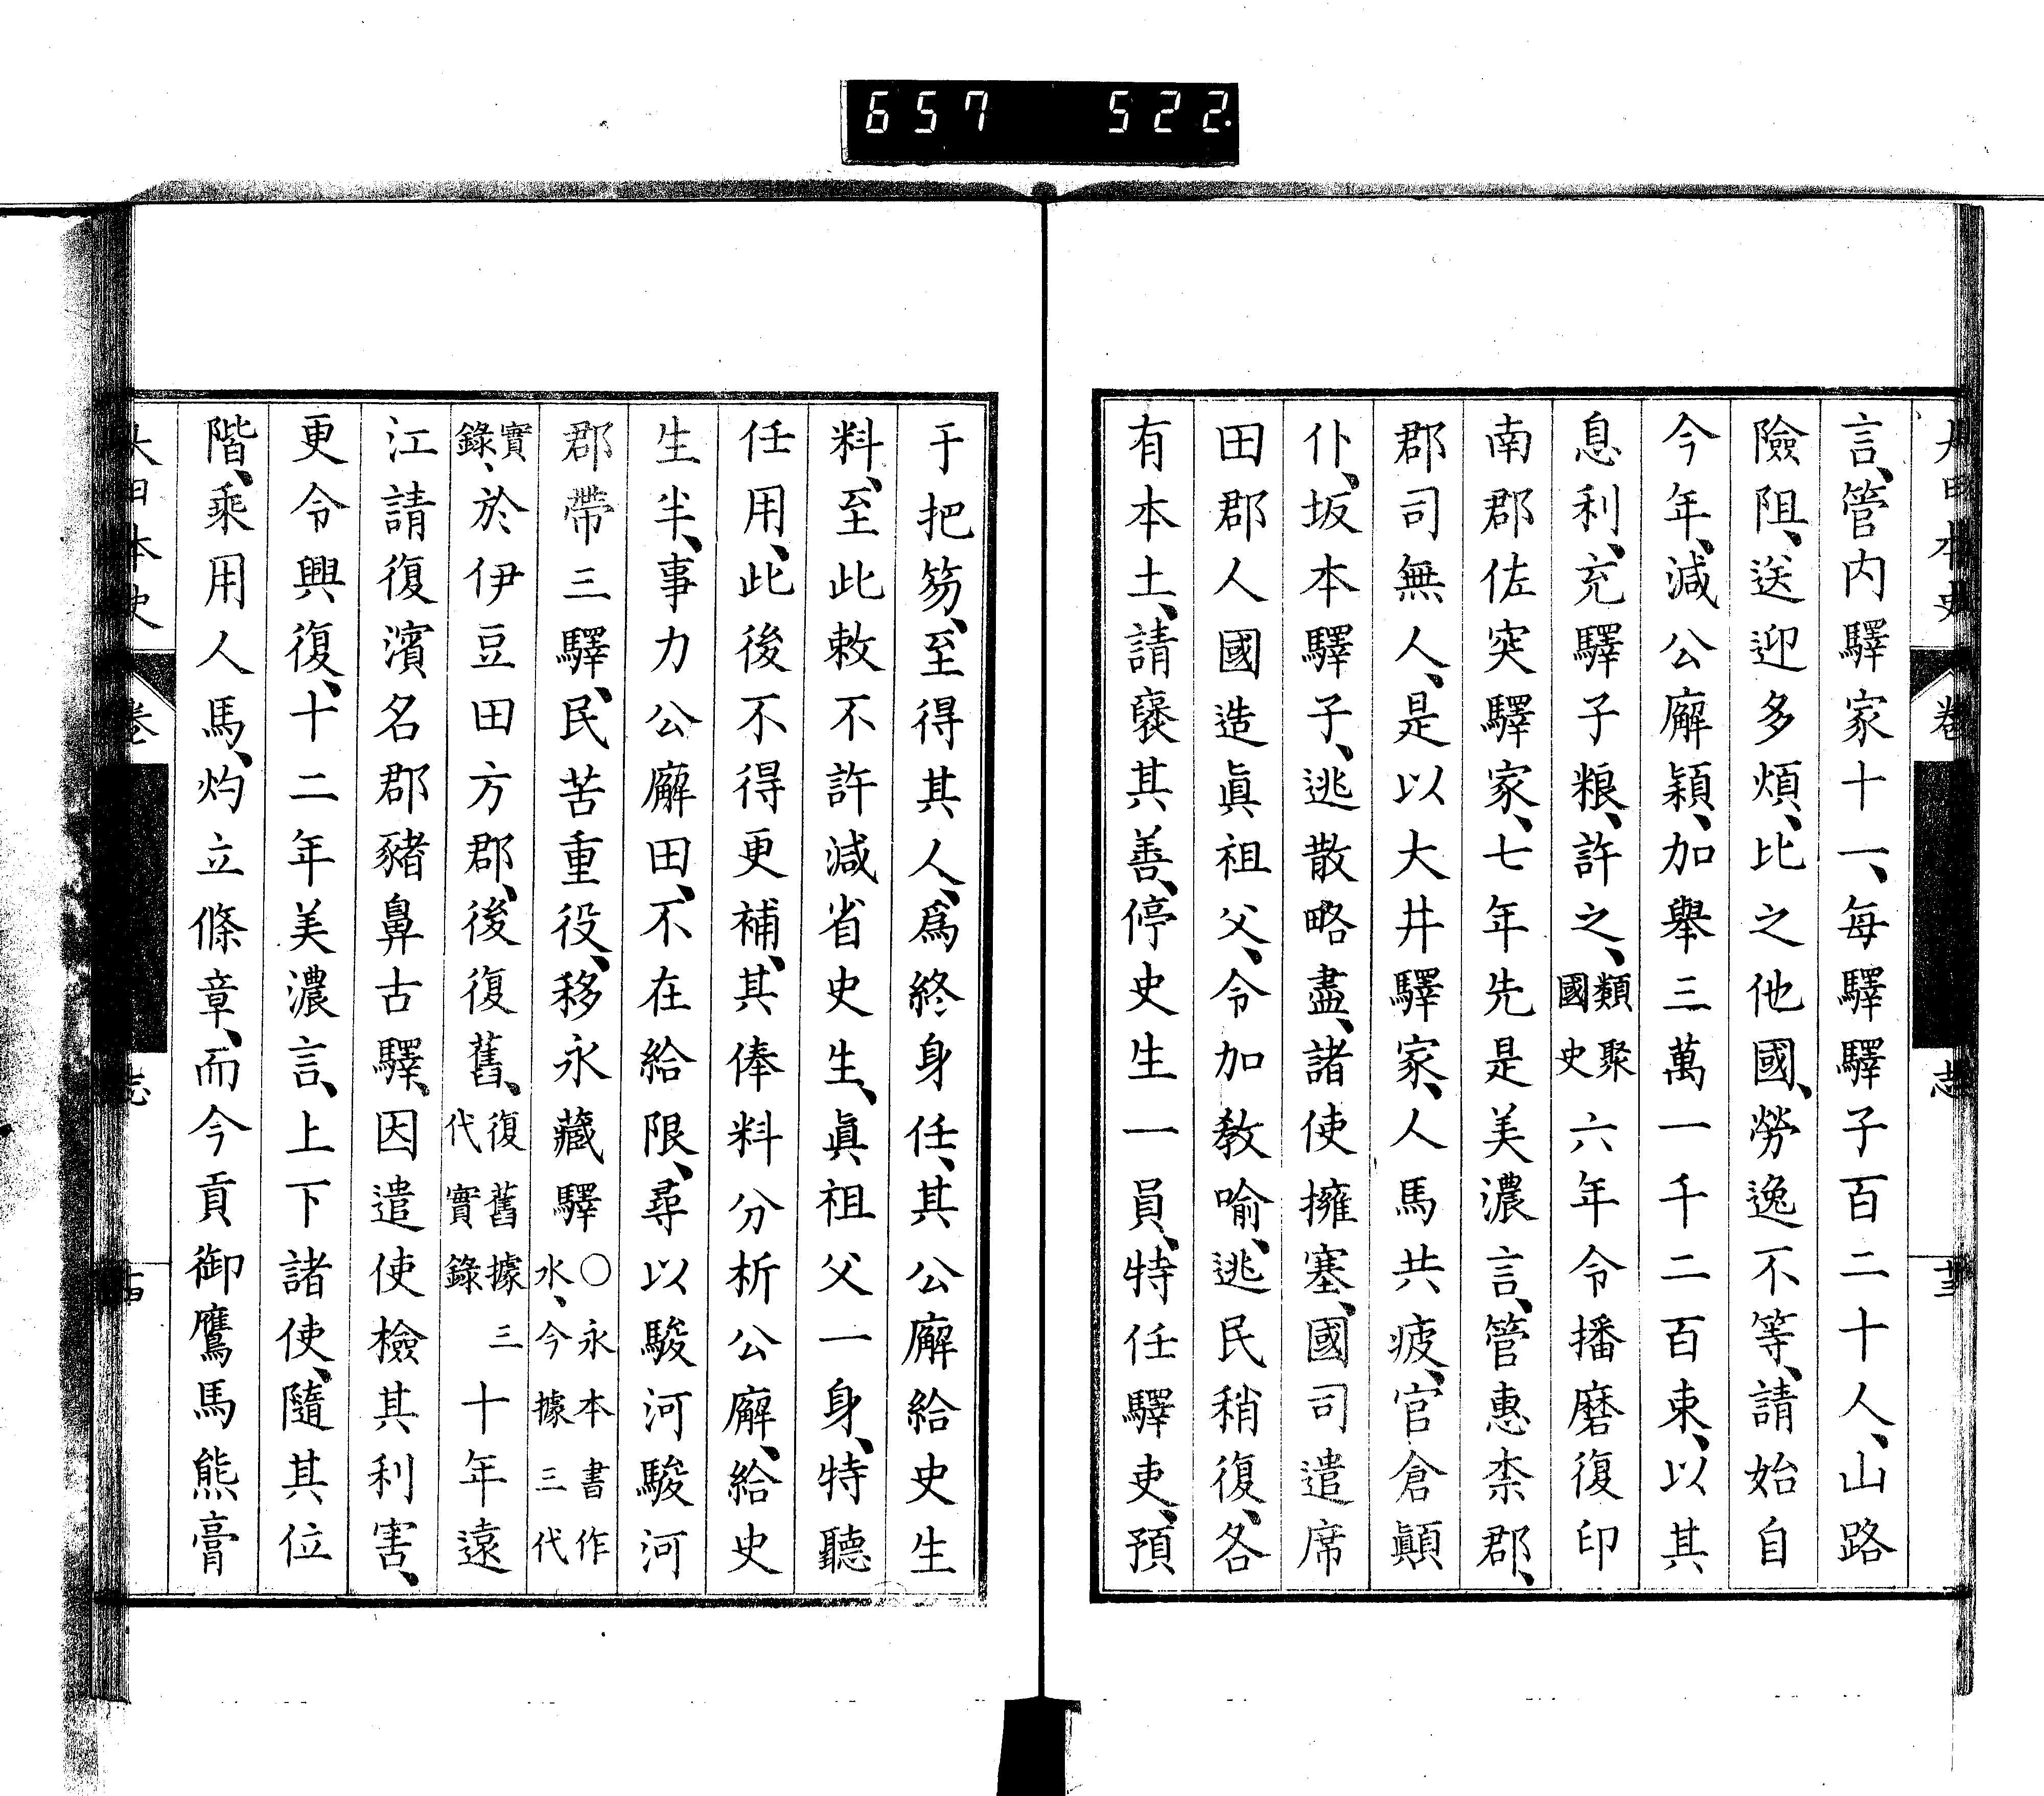 657 522.
大日本史 卷 志 十三
言、管内驛家十一、每驛驛子百二十人、山路
險阻、送迎多煩、比之他國、勞逸不等、請始自
今年、減公廨穎、加舉三萬一千二百束、以其
息利、充驛子粮、許之、類聚國史六年令播磨復印
南郡佐突驛家、七年先是美濃言、管惠柰郡、
郡司無人、是以大井驛家、人馬共疲、官倉顚
仆、坂本驛子、逃散略盡、諸使擁塞、國司遣席
田郡人國造眞祖父、令加敎喻、逃民稍復、各
有本土、請襃其善、停史生一員、特任驛吏、預
于把笏、至得其人、爲終身任、其公廨給史生
料、至此敕不許減省史生、眞祖父一身、特聽
任用、此後不得更補、其俸料分析公廨、給史
生半、事力公廨田、不在給限、尋以駿河駿河
郡帶三驛、民苦重役、移永藏驛○永本書作水、今據三代
實錄、於伊豆田方郡、後復舊、復舊據三代實錄十年遠
江請復濱名郡豬鼻古驛、因遣使檢其利害、
更令興復、十二年美濃言、上下諸使、隨其位
階、乘用人馬、灼立條章、而今貢御鷹馬熊膏
大日本史 卷 志